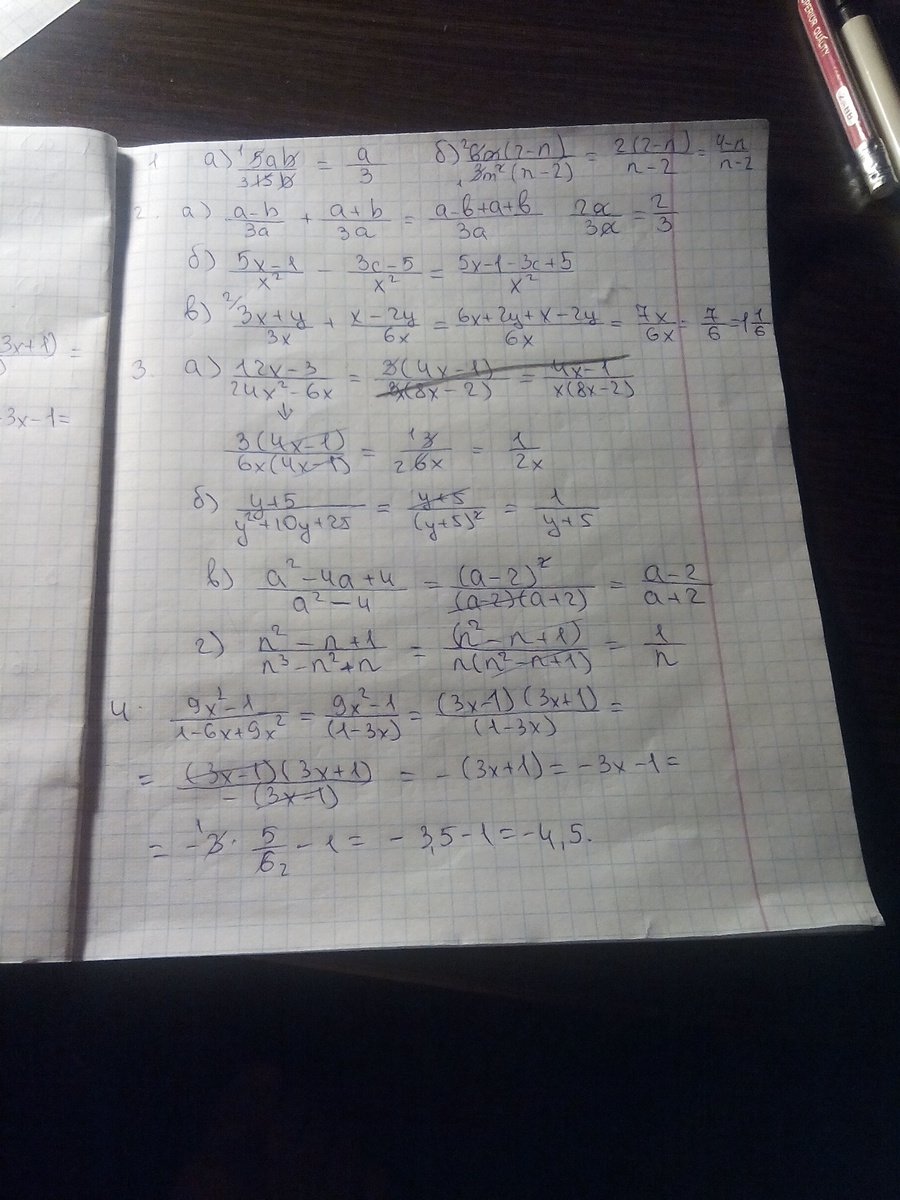 SUPERIOR QUALITY
1 а) 5ab/315b = a/3 б) 6m(2-n)/3m²(n-2) = 2(2-n)/n-2 = 4-n/n-2
2. а) a-b/3a + a+b/3a = a-b+a+b/3a 2a/3a = 2/3
б) 5x-1/x² - 3c-5/x² = 5x-1-3c+5/x²
в) 2/ 3x+y/3x + x-2y/6x = 6x+2y+x-2y/6x = 7x/6x = 7/6 = 1 1/6
3x+1) =
3. а) 12x-3/24x²-6x = 3(4x-1)/3x(8x-2) = 4x-1/x(8x-2)
-3x-1=
3(4x-1)/6x(4x-1) = 3/6x = 1/2x
б) y+5/y²+10y+25 = y+5/(y+5)² = 1/y+5
в) a²-4a+4/a²-4 = (a-2)²/(a-2)(a+2) = a-2/a+2
г) n²-n+1/n³-n²+n = (n²-n+1)/n(n²-n+1) = 1/n
4. 9x²-1/1-6x+9x² = 9x²-1/(1-3x) = (3x-1)(3x+1)/(1-3x) =
= (3x-1)(3x+1)/-(3x-1) = -(3x+1) = -3x-1 =
= -3 · 5/6 - 1 = -3,5-1 = -4,5.